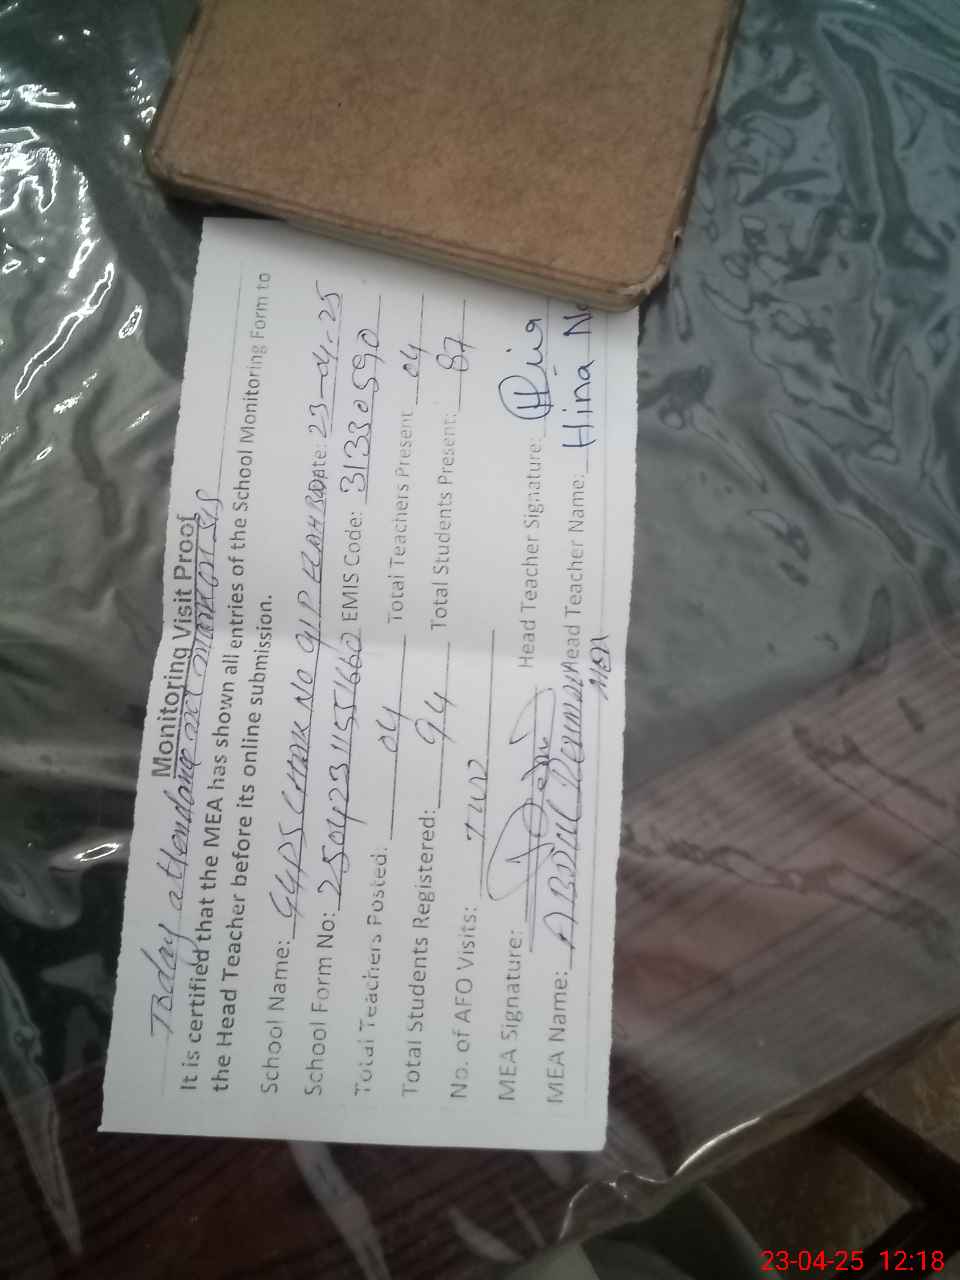 Monitoring Visit Proof
Today attendance and mark on SIS
It is certified that the MEA has shown all entries of the School Monitoring Form to
the Head Teacher before its online submission.
School Name: GGPS CHAK NO 91P Date: 23-04-25
School Form No: EMIS Code: 31330590
Total Teachers Posted: 04 Total Teachers Present 04
Total Students Registered: 94 Total Students Present: 87
No. of AFO Visits: TWO
MEA Signature: Head Teacher Signature: Hina
MEA Name: ABDUL REHMAN Head Teacher Name: Hina
MEA
23-04-25 12:18